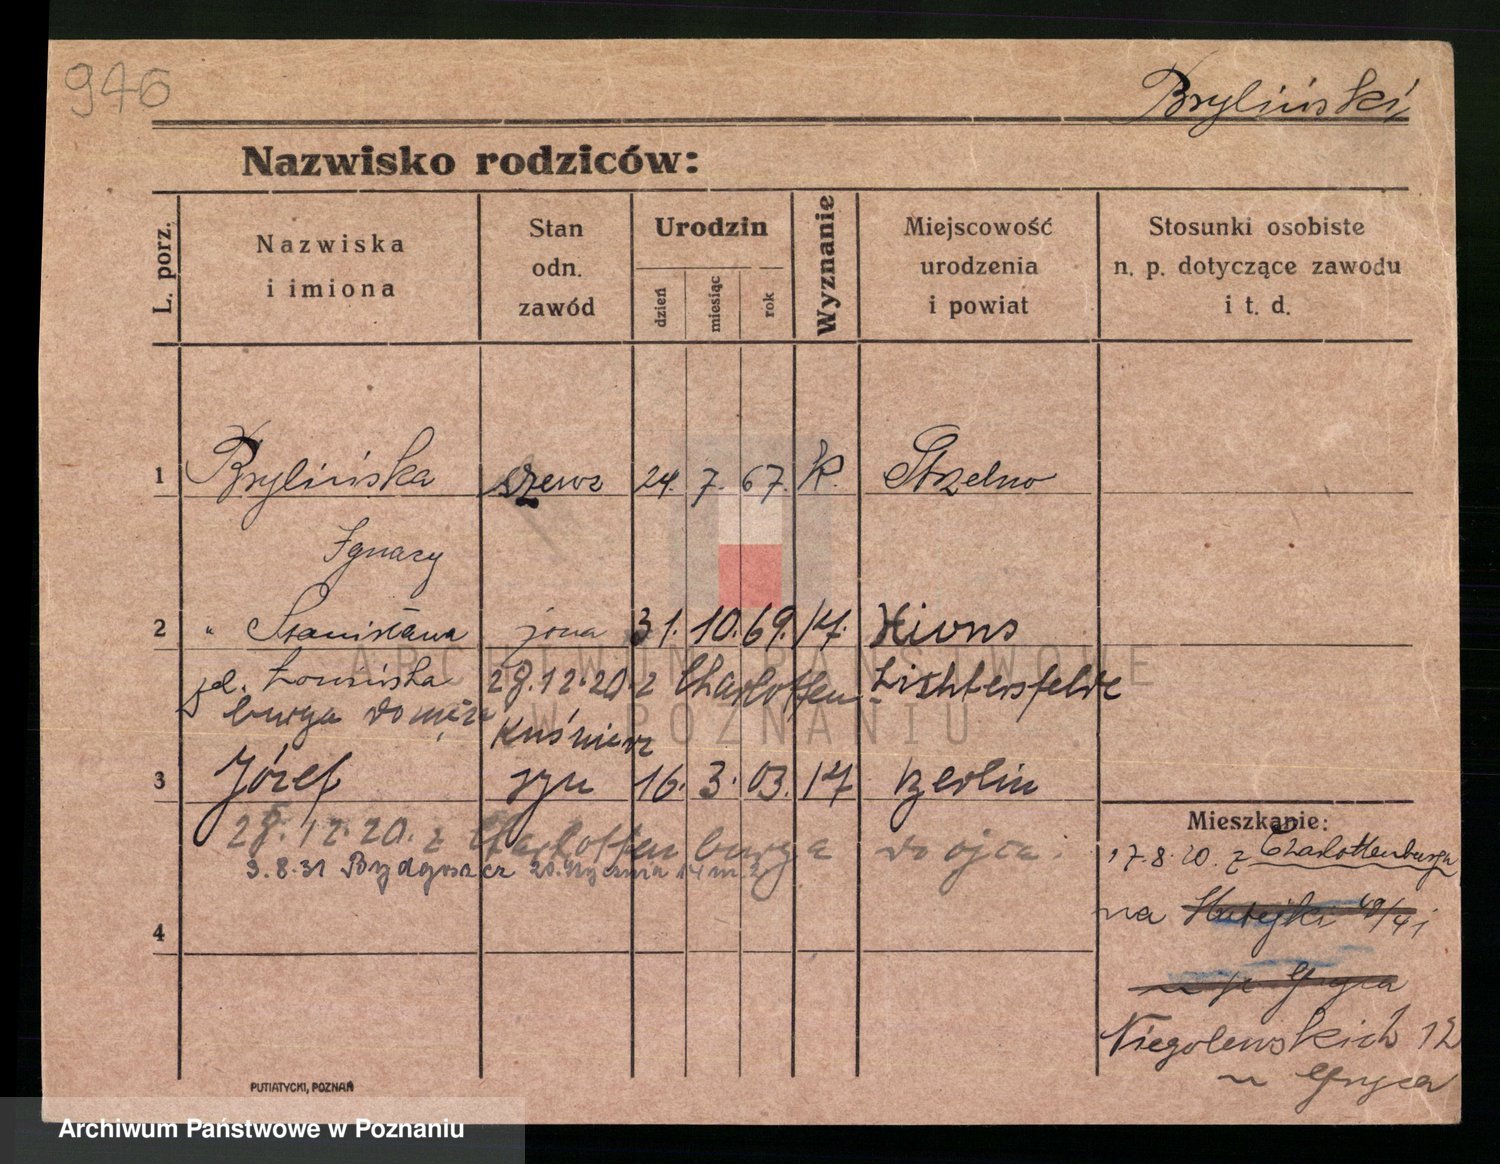 946
Bryliński
Nazwisko rodziców:
L. porz.
Nazwiska
i imiona
Stan
odn.
zawód
Urodzin
dzień
miesiąc
rok
Wyznanie
Miejscowość
urodzenia
i powiat
Stosunki osobiste
n. p. dotyczące zawodu
i t. d.
1 Brylińska szewc 24. 7. 67. k. Strzelno
Ignacy
2 " Stanisława żona 31. 10. 69. Xions
28.12.20. z Charlotten- Lichterfelde
burga do męża
kuśnierz
3 Józef syn 16. 3. 03. Berlin
28.12.20. z Charlottenburga do ojca.
3.8.31 Bydgoszcz 20. Stycznia
4
Mieszkanie:
17.8.20. z Charlottenburga
na
Niegolewskich 12
u Gryca
PUTIATYCKI, POZNAŃ
ARCHIWUM PAŃSTWOWE
W POZNANIU
Archiwum Państwowe w Poznaniu